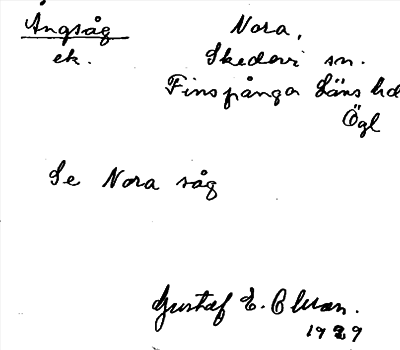 Ångsåg Nora,
ek. Skedevi sn.
Finspånga Läns hd
Ögl
Se Nora såg
Gustaf E.
1929